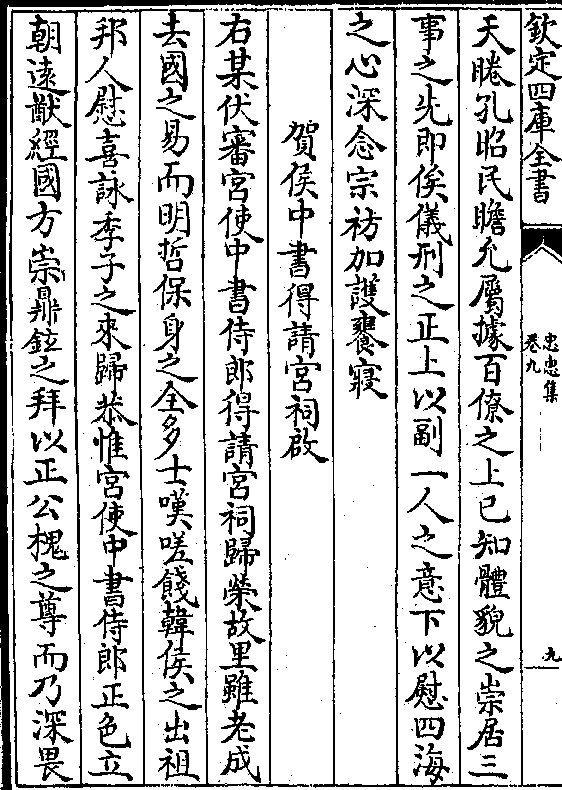 欽定四庫全書
忠惠集
卷九
九
天睠孔昭民瞻允屬據百僚之上已知體貌之崇居三
事之先即俟儀刑之正上以副一人之意下以慰四海
之心深念宗祊加護饔寢
賀侯中書得請宮祠啟
右某伏審宮使中書侍郎得請宮祠歸榮故里雖老成
去國之易而明哲保身之全多士嘆嗟餞韓侯之出祖
邦人慰喜詠季子之來歸恭惟宮使中書侍郎正色立
朝遠猷經國方崇鼎鉉之拜以正公槐之尊而乃深畏